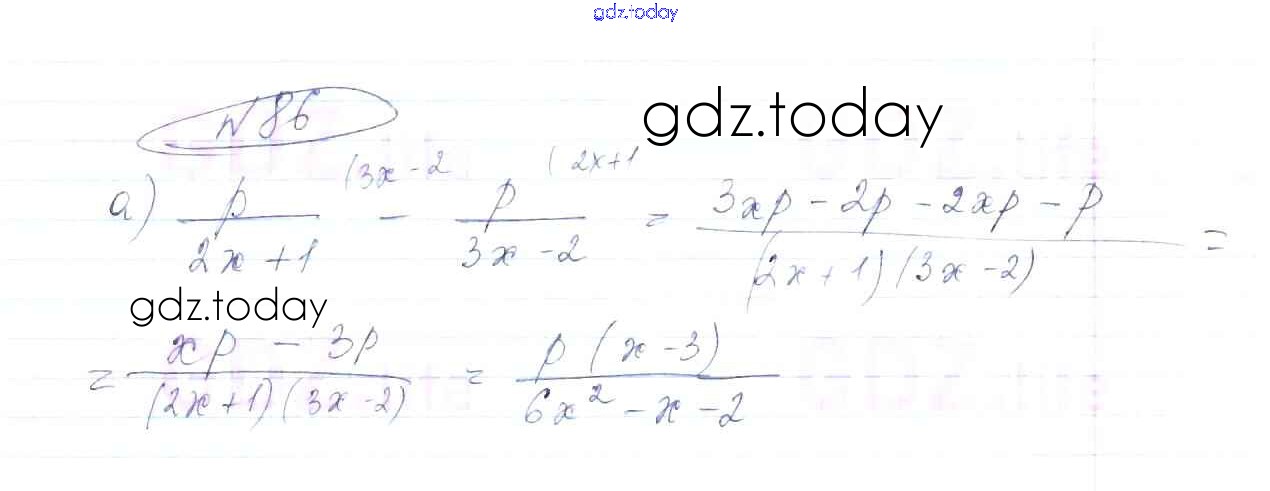 gdz.today
№86
gdz.today
(3x-2 (2x+1
a) p/(2x+1) - p/(3x-2) = (3xp - 2p - 2xp - p)/((2x+1)(3x-2)) =
gdz.today
= (xp - 3p)/((2x+1)(3x-2)) = p(x-3)/(6x² - x - 2)